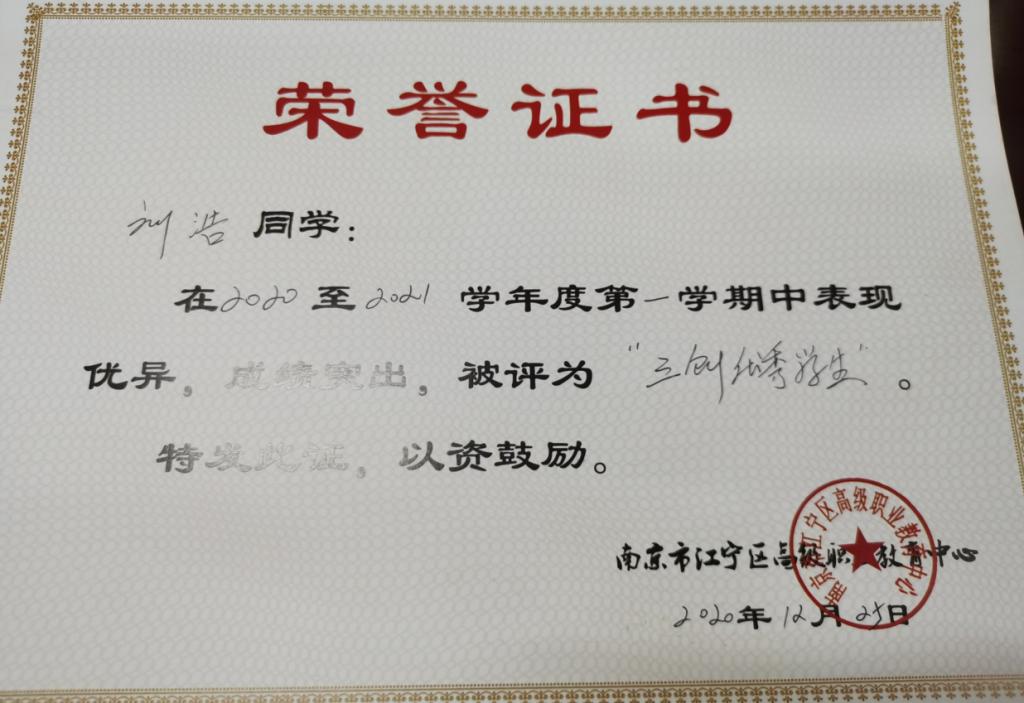 荣誉证书
刘浩 同学：
在2020至2021 学年度第一学期中表现
优异，成绩突出，被评为 “三创优秀学生”。
特发此证，以资鼓励。
南京市江宁区高级职业教育中心
南京市江宁区高级职业教育中心
2020年12月25日